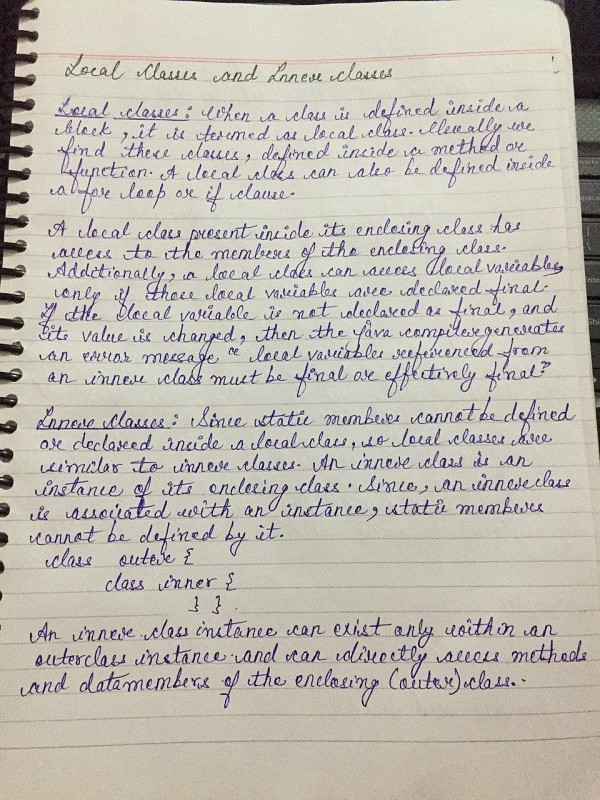 Local Classes and Inner classes
Local classes: When a class is defined inside a
block, it is termed as local class. Usually we
find these classes, defined inside a method or
function. A local class can also be defined inside
a for loop or if clause.
A local class present inside its enclosing class has
access to the members of the enclosing class.
Additionally, a local class can access local variables
only if those local variables are declared final.
If the local variable is not declared as final, and
its value is changed, then the Java compiler generates
an error message "local variables referenced from
an inner class must be final or effectively final"
Inner Classes: Since static members cannot be defined
or declared inside a local class, so local classes are
similar to inner classes. An inner class is an
instance of its enclosing class. Since, an inner class
is associated with an instance, static members
cannot be defined by it.
class outer {
class inner {
} }.
An inner class instance can exist only within an
outerclass instance and can directly access methods
and datamembers of the enclosing (outer) class.